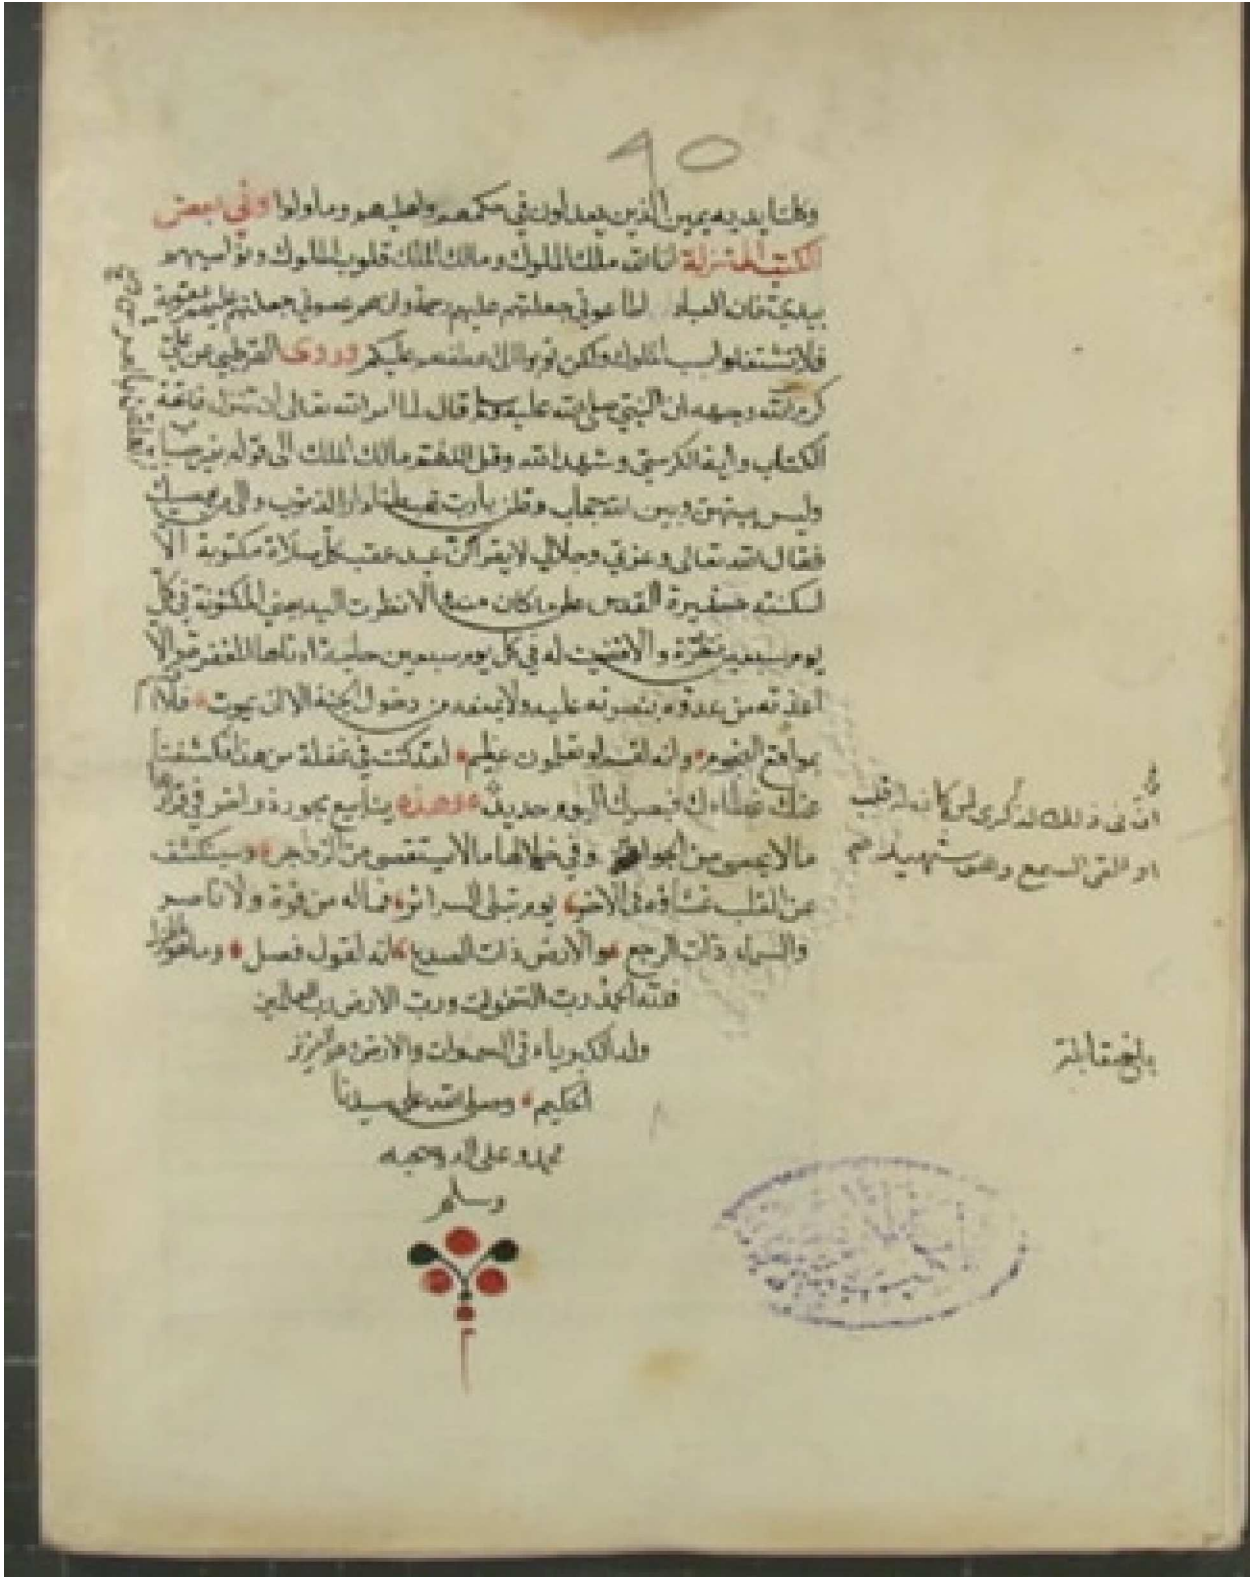 ٩٥
وكلتا يديه يمين الذين يعدلون في حكمهم واهليهم وما ولوا وفي بعض
الكتب المنزلة انا الله ملك الملوك ومالك الملك قلوب الملوك ونواصيهم
بيدي فان العباد اطاعوني جعلتهم عليهم رحمة وان هم عصوني جعلتهم عليهم عقوبة
فلا تشتغلوا بسب الملوك ولكن توبوا الي اعطفهم عليكم وروى القرطبي عن علي
كرم الله وجهه ان النبي صلى الله عليه وسلم قال لما امر الله تعالى ان تنزل فاتحة
الكتاب واية الكرسي وشهد الله وقل اللهم مالك الملك الى قوله بغير حساب
وليس بينهن وبين الله حجاب وقلن يا رب تهبطنا دار الذنوب والى من يعصيك
فقال الله تعالى وعزتي وجلالي لا يقراكن عبد عقب كل صلاة مكتوبة الا
اسكنته حضيرة القدس على ما كان منه والا نظرت اليه بعيني المكنونة في كل
يوم سبعين نظرة والا قضيت له في كل يوم سبعين حاجة ادناها المغفرة والا
اعذته من عدوه ونصرته عليه ولا يمنعه من دخول الجنة الا ان يموت فلا
بمواقع النجوم وانه لقسم لو تعلمون عظيم لقد كنت في غفلة من هذا فكشفنا
عنك غطاءك فبصرك اليوم حديد وهذه ينابيع بحورة واخر في قرار
ما لا يحصى من الجواهر وفي خلالها ما لا يستقصى من الزواجر وسينكشف
عن القلب غشاوه في الاخر يوم تبلى السرائر فما له من قوة ولا ناصر
والسماء ذات الرجع والارض ذات الصدع انه لقول فصل وما هو بالهزل
فلله الحمد رب السموات ورب الارض رب العالمين
وله الكبرياء في السموات والارض وهو العزيز
الحكيم وصلى الله على سيدنا
محمد وعلى اله وصحبه
وسلم
ان في ذلك لذكرى لمن كان له قلب
او القى السمع وهو شهيد
بلغ مقابلة